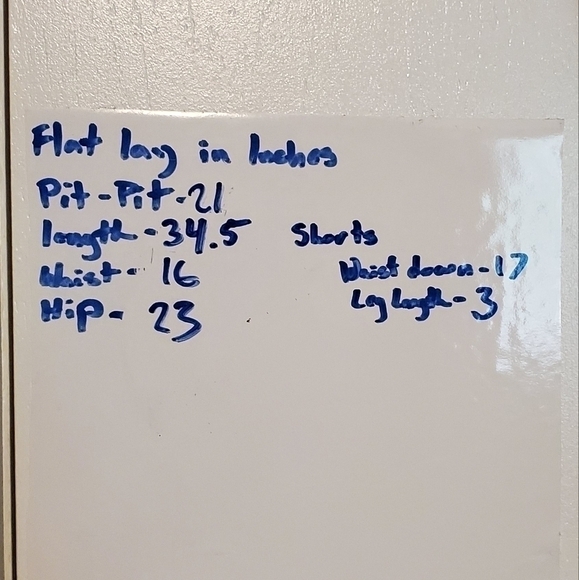 Flat lay in Inches
Pit-Pit-21
length-34.5
Waist-16
Hip-23
Shorts
Waist down-17
Leg length-3